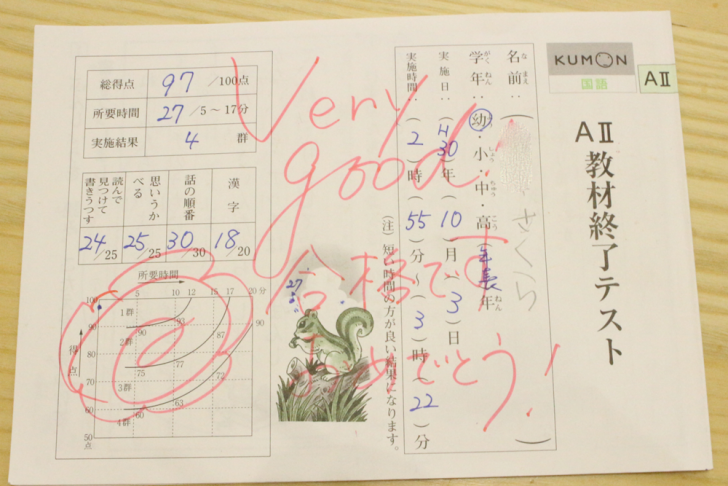 KUMON
国語
AⅡ
AⅡ教材終了テスト
名前：( さくら )
なまえ
学年：幼・小・中・高(年長年)
がくねん
しょう
ちゅう
こう
ねん
実施日：(H30)年(10)月(3)日
実施時間：(2)時(55)分～(3)時(22)分
(注) 短い時間の方が良い結果になります。
Very
good!
合格です
おめでとう!
総得点 97 /100点
所要時間 27 /5～17分
実施結果 4 群
漢字 18/20
話の順番 30/30
思いうかべる 25/25
読んで見つけて書きうつす 24/25
所要時間
5 10 12 15 17 20分
27
得点
100
90
80
70
60
50
点
1群
2群
3群
4群
90
93
90
87
75
77
72
60
63